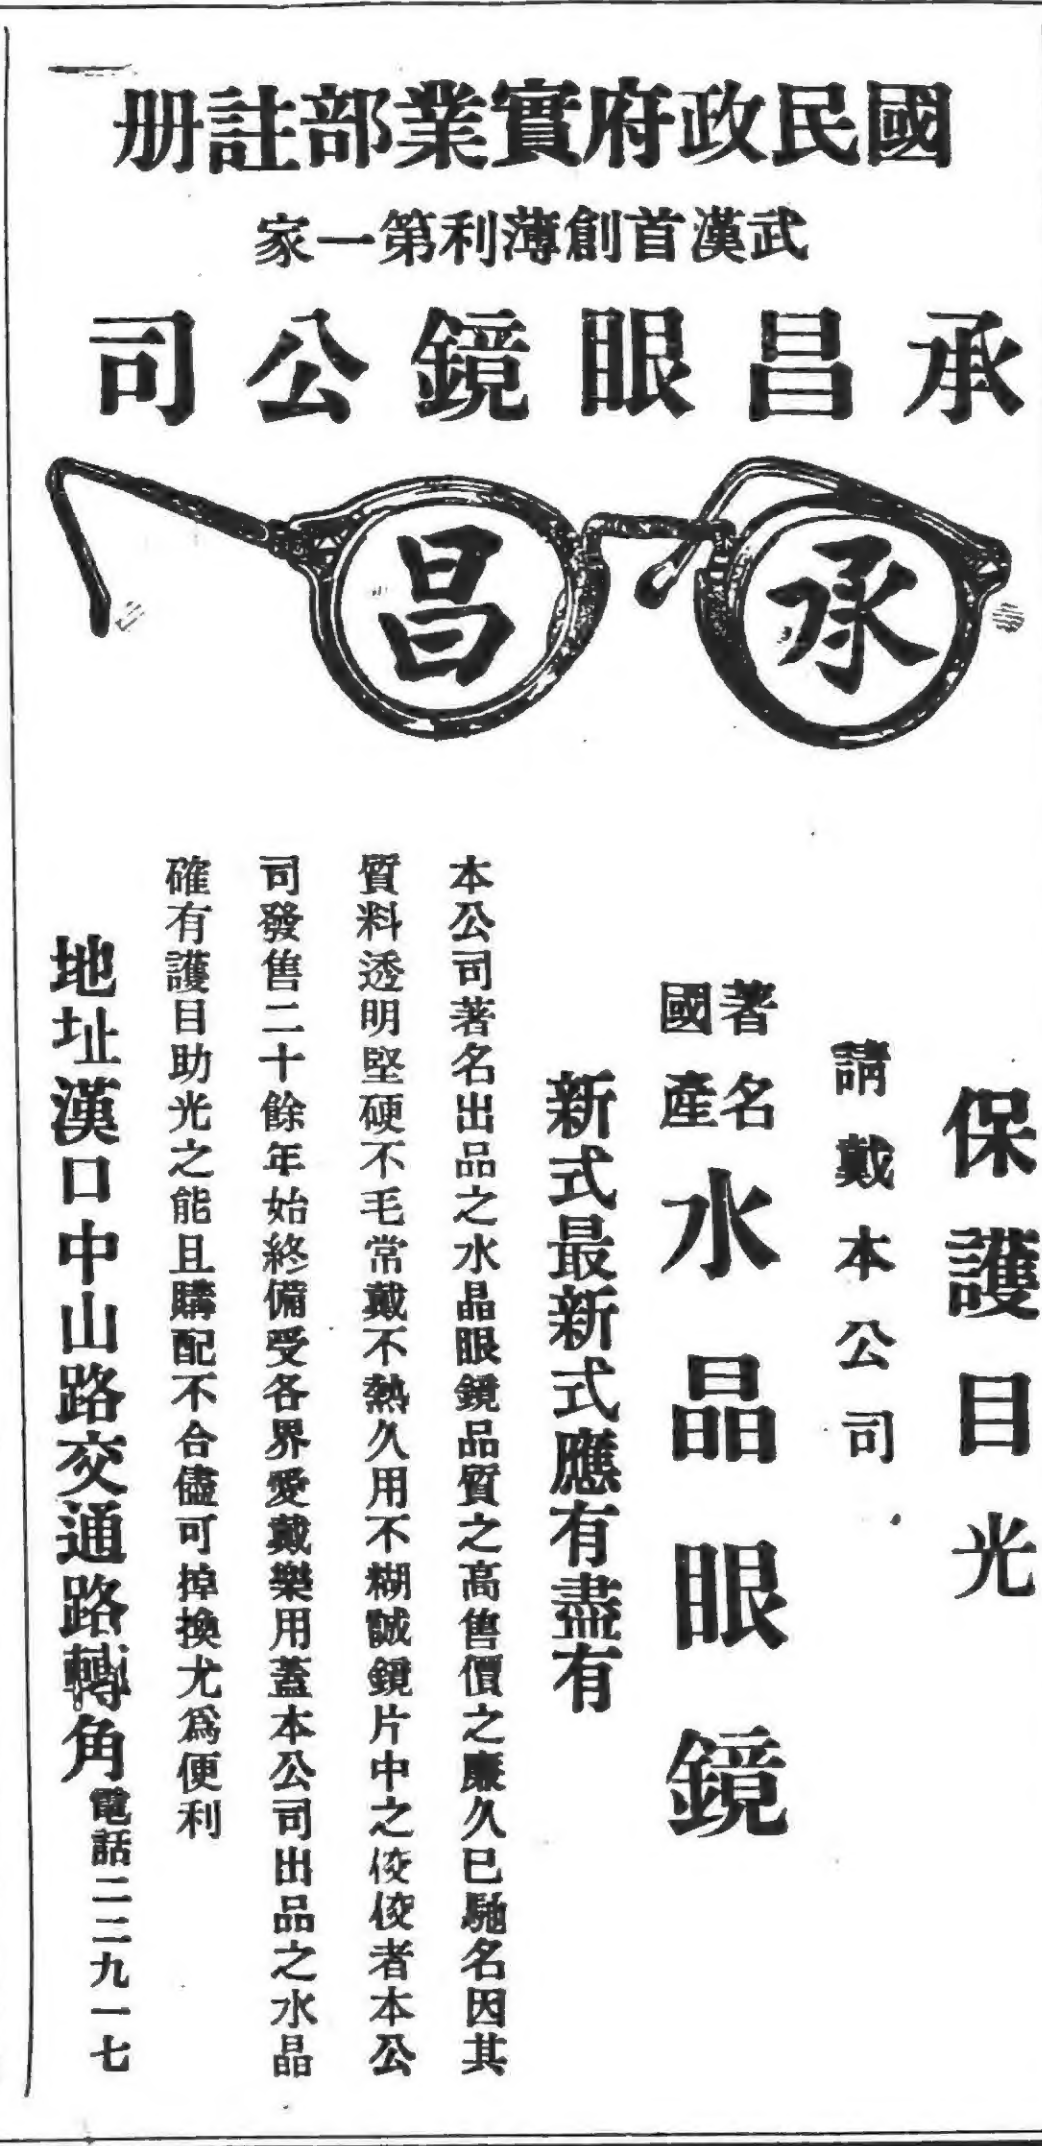 國民政府實業部註册
武漢首創薄利第一家
承昌眼鏡公司
承昌
保護目光
請戴本公司
著名
國產
水晶眼鏡
新式最新式應有盡有
本公司著名出品之水晶眼鏡品質之高售價之廉久已馳名因其
質料透明堅硬不毛常戴不熱久用不糊誠鏡片中之佼佼者本公
司發售二十餘年始終備受各界愛戴樂用蓋本公司出品之水晶
確有護目助光之能且購配不合儘可掉換尤爲便利
地址漢口中山路交通路轉角電話二二九一七